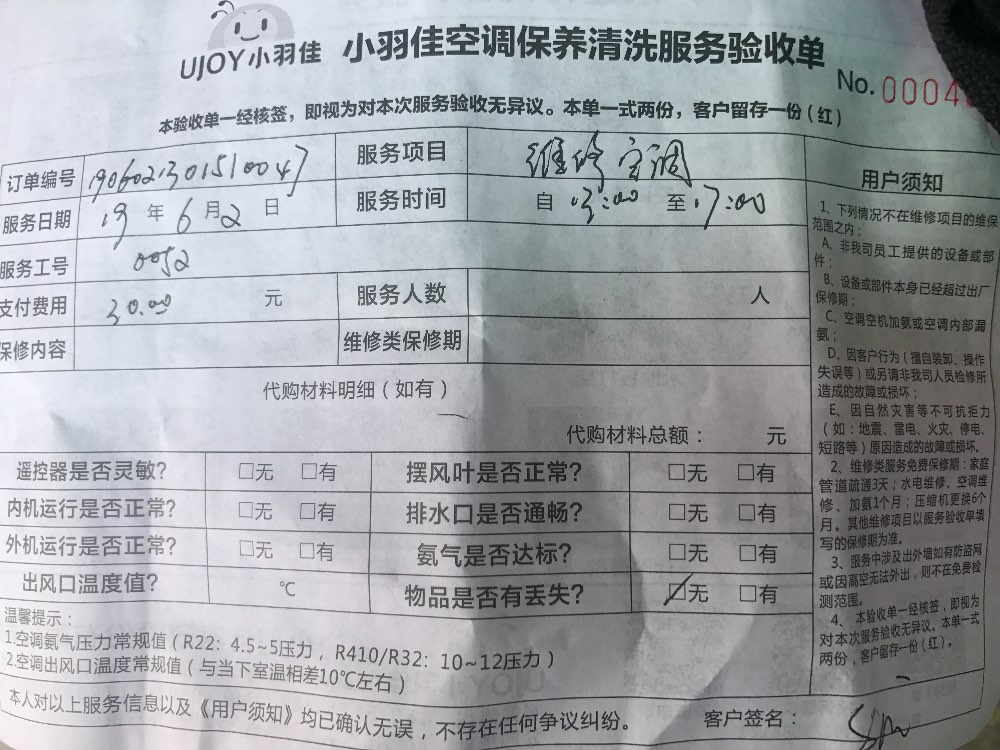 UJOY小羽佳 小羽佳空调保养清洗服务验收单
No. 0004
本验收单一经核签，即视为对本次服务验收无异议。本单一式两份，客户留存一份（红）
订单编号 1906021301510047 服务项目 维修空调
服务日期 19 年 6 月 2 日 服务时间 自 13:00 至 17:00
服务工号 0052
支付费用 30.00 元 服务人数 人
保修内容 维修类保修期
代购材料明细（如有）
代购材料总额： 元
遥控器是否灵敏? □无 □有 摆风叶是否正常? □无 □有
内机运行是否正常? □无 □有 排水口是否通畅? □无 □有
外机运行是否正常? □无 □有 氨气是否达标? □无 □有
出风口温度值? ℃ 物品是否有丢失? ☑无 □有
温馨提示：
1.空调氨气压力常规值（R22：4.5~5压力，R410/R32：10~12压力）
2.空调出风口温度常规值（与当下室温相差10℃左右）
本人对以上服务信息以及《用户须知》均已确认无误，不存在任何争议纠纷。 客户签名：
用户须知
1、下列情况不在维修项目的维保
范围之内：
A、非我司员工提供的设备或部
件；
B、设备或部件本身已经超过出厂
保修期；
C、空调空机加氨或空调内部漏
氨；
D、因客户行为（擅自装卸、操作
失误等）或另请非我司人员检修所
造成的故障或损坏；
E、因自然灾害等不可抗拒力
（如：地震、雷电、火灾、停电、
短路等）原因造成的故障或损坏。
2、维修类服务免费保修期：家庭
管道疏通3天；水电维修、空调维
修、加氨1个月；压缩机更换6个
月。其他维修项目以服务验收单填
写的保修期为准。
3、服务中涉及出外墙如有防盗网
或因高空无法外出，则不在免费检
测范围。
4、本验收单一经核签，即视为
对本次服务验收无异议。本单一式
两份，客户留存一份（红）。